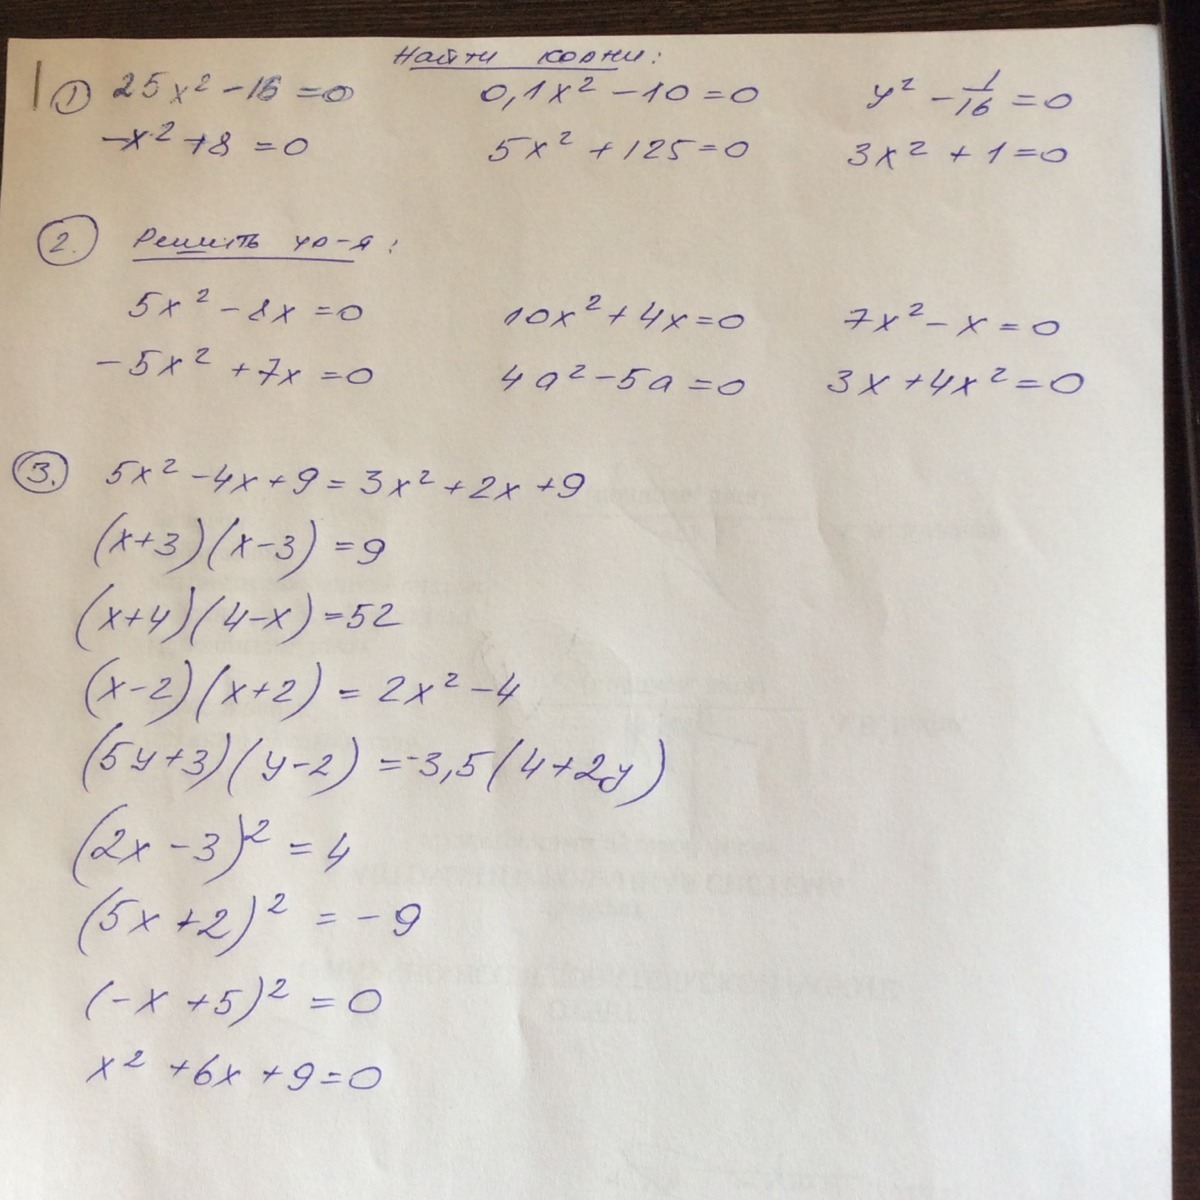 Найти корни:
① 25x² - 16 = 0 0,1x² - 10 = 0 y² - 1/16 = 0
-x² + 8 = 0 5x² + 125 = 0 3x² + 1 = 0
②. Решить ур-я:
5x² - 8x = 0 10x² + 4x = 0 7x² - x = 0
-5x² + 7x = 0 4a² - 5a = 0 3x + 4x² = 0
③. 5x² - 4x + 9 = 3x² + 2x + 9
(x+3)(x-3) = 9
(x+4)(4-x) = 52
(x-2)(x+2) = 2x² - 4
(5y+3)(y-2) = -3,5(4+2y)
(2x - 3)² = 4
(5x + 2)² = -9
(-x + 5)² = 0
x² + 6x + 9 = 0